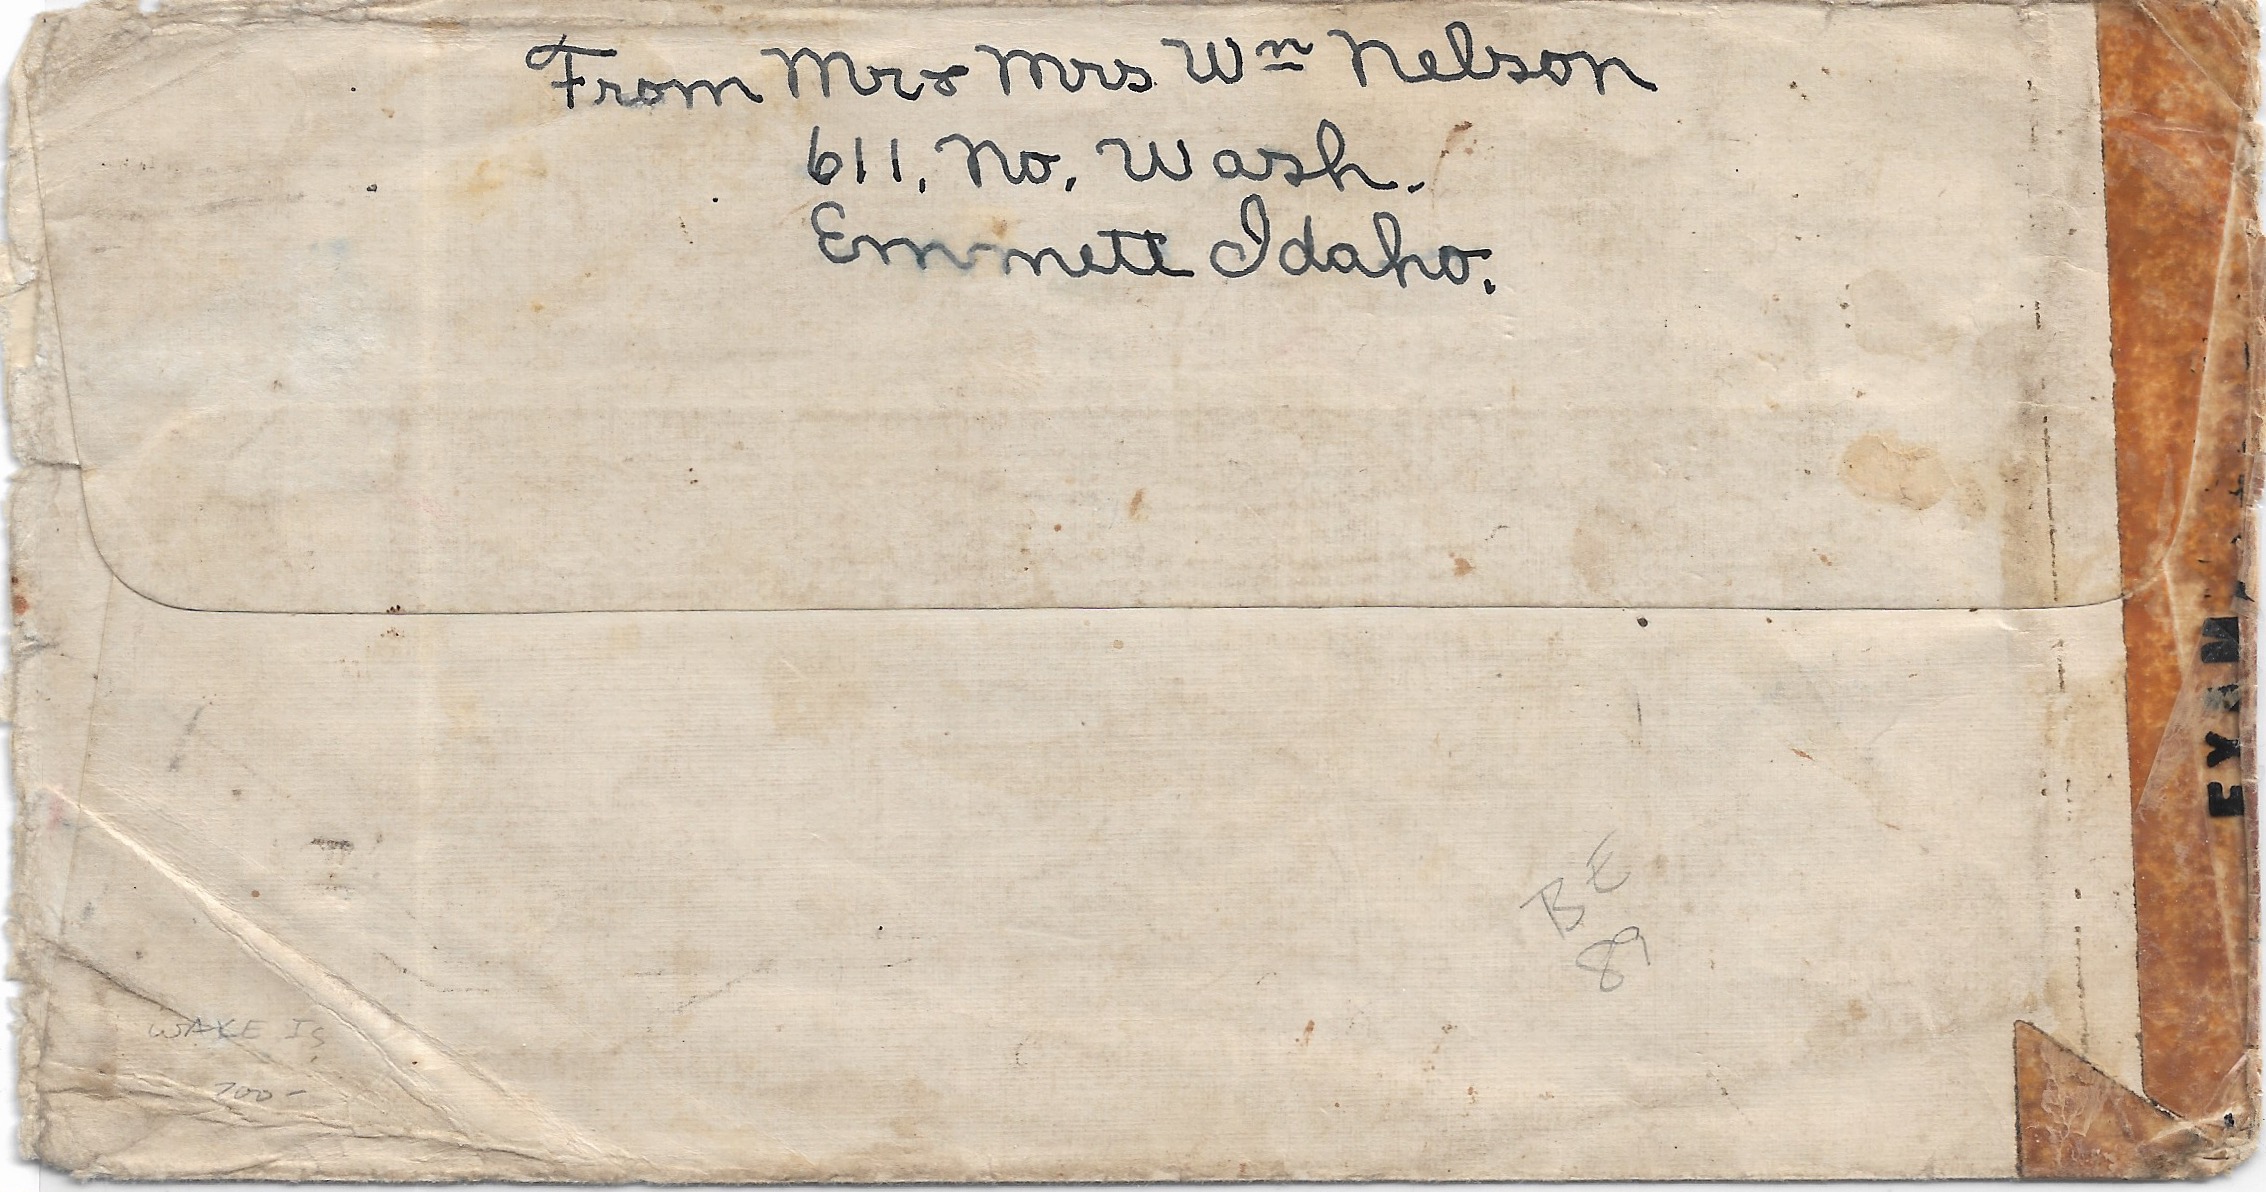 From Mr & Mrs Wm Nelson
611, No, Wash.
Emmett Idaho.
EXAM
BE
89
WAKE IS
700-